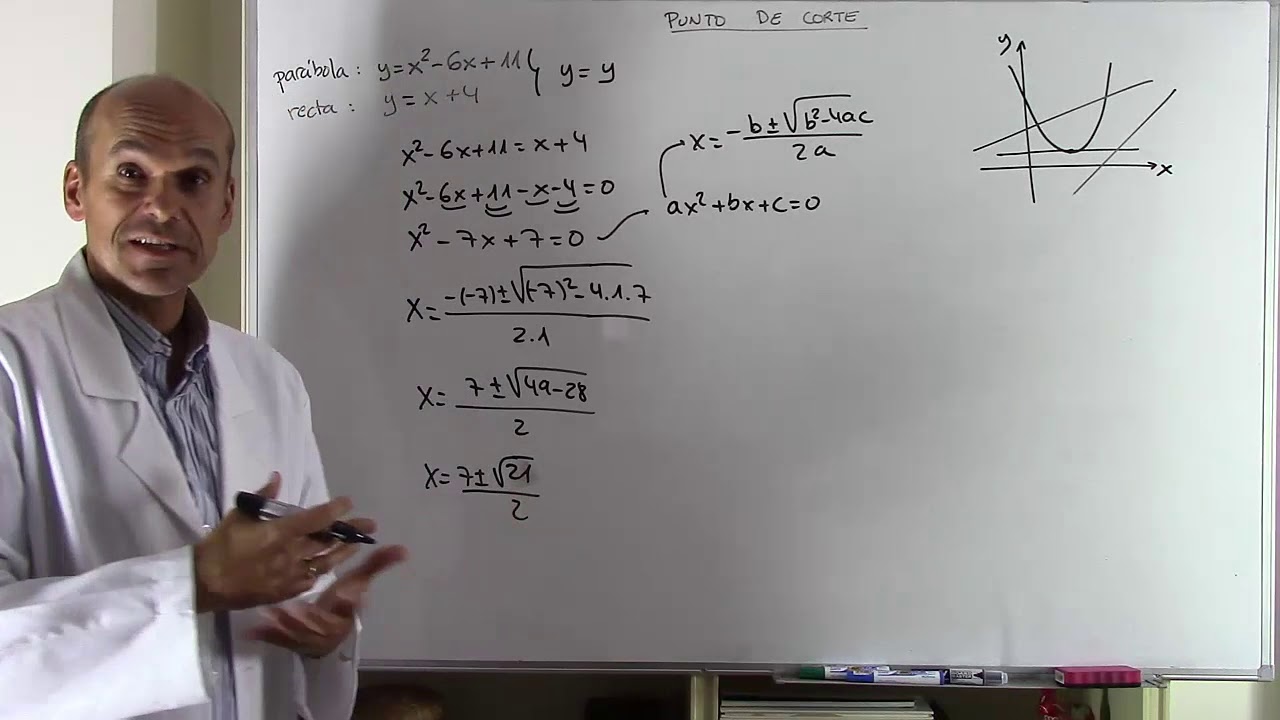 PUNTO DE CORTE
parábola: y=x²-6x+11
recta: y=x+4
y=y
x²-6x+11=x+4
x²-6x+11-x-4=0
x²-7x+7=0
ax²+bx+c=0
x=-b±√b²-4ac
2a
x=-(-7)±√(-7)²-4.1.7
2.1
x=7±√49-28
2
x=7±√21
2
y
x